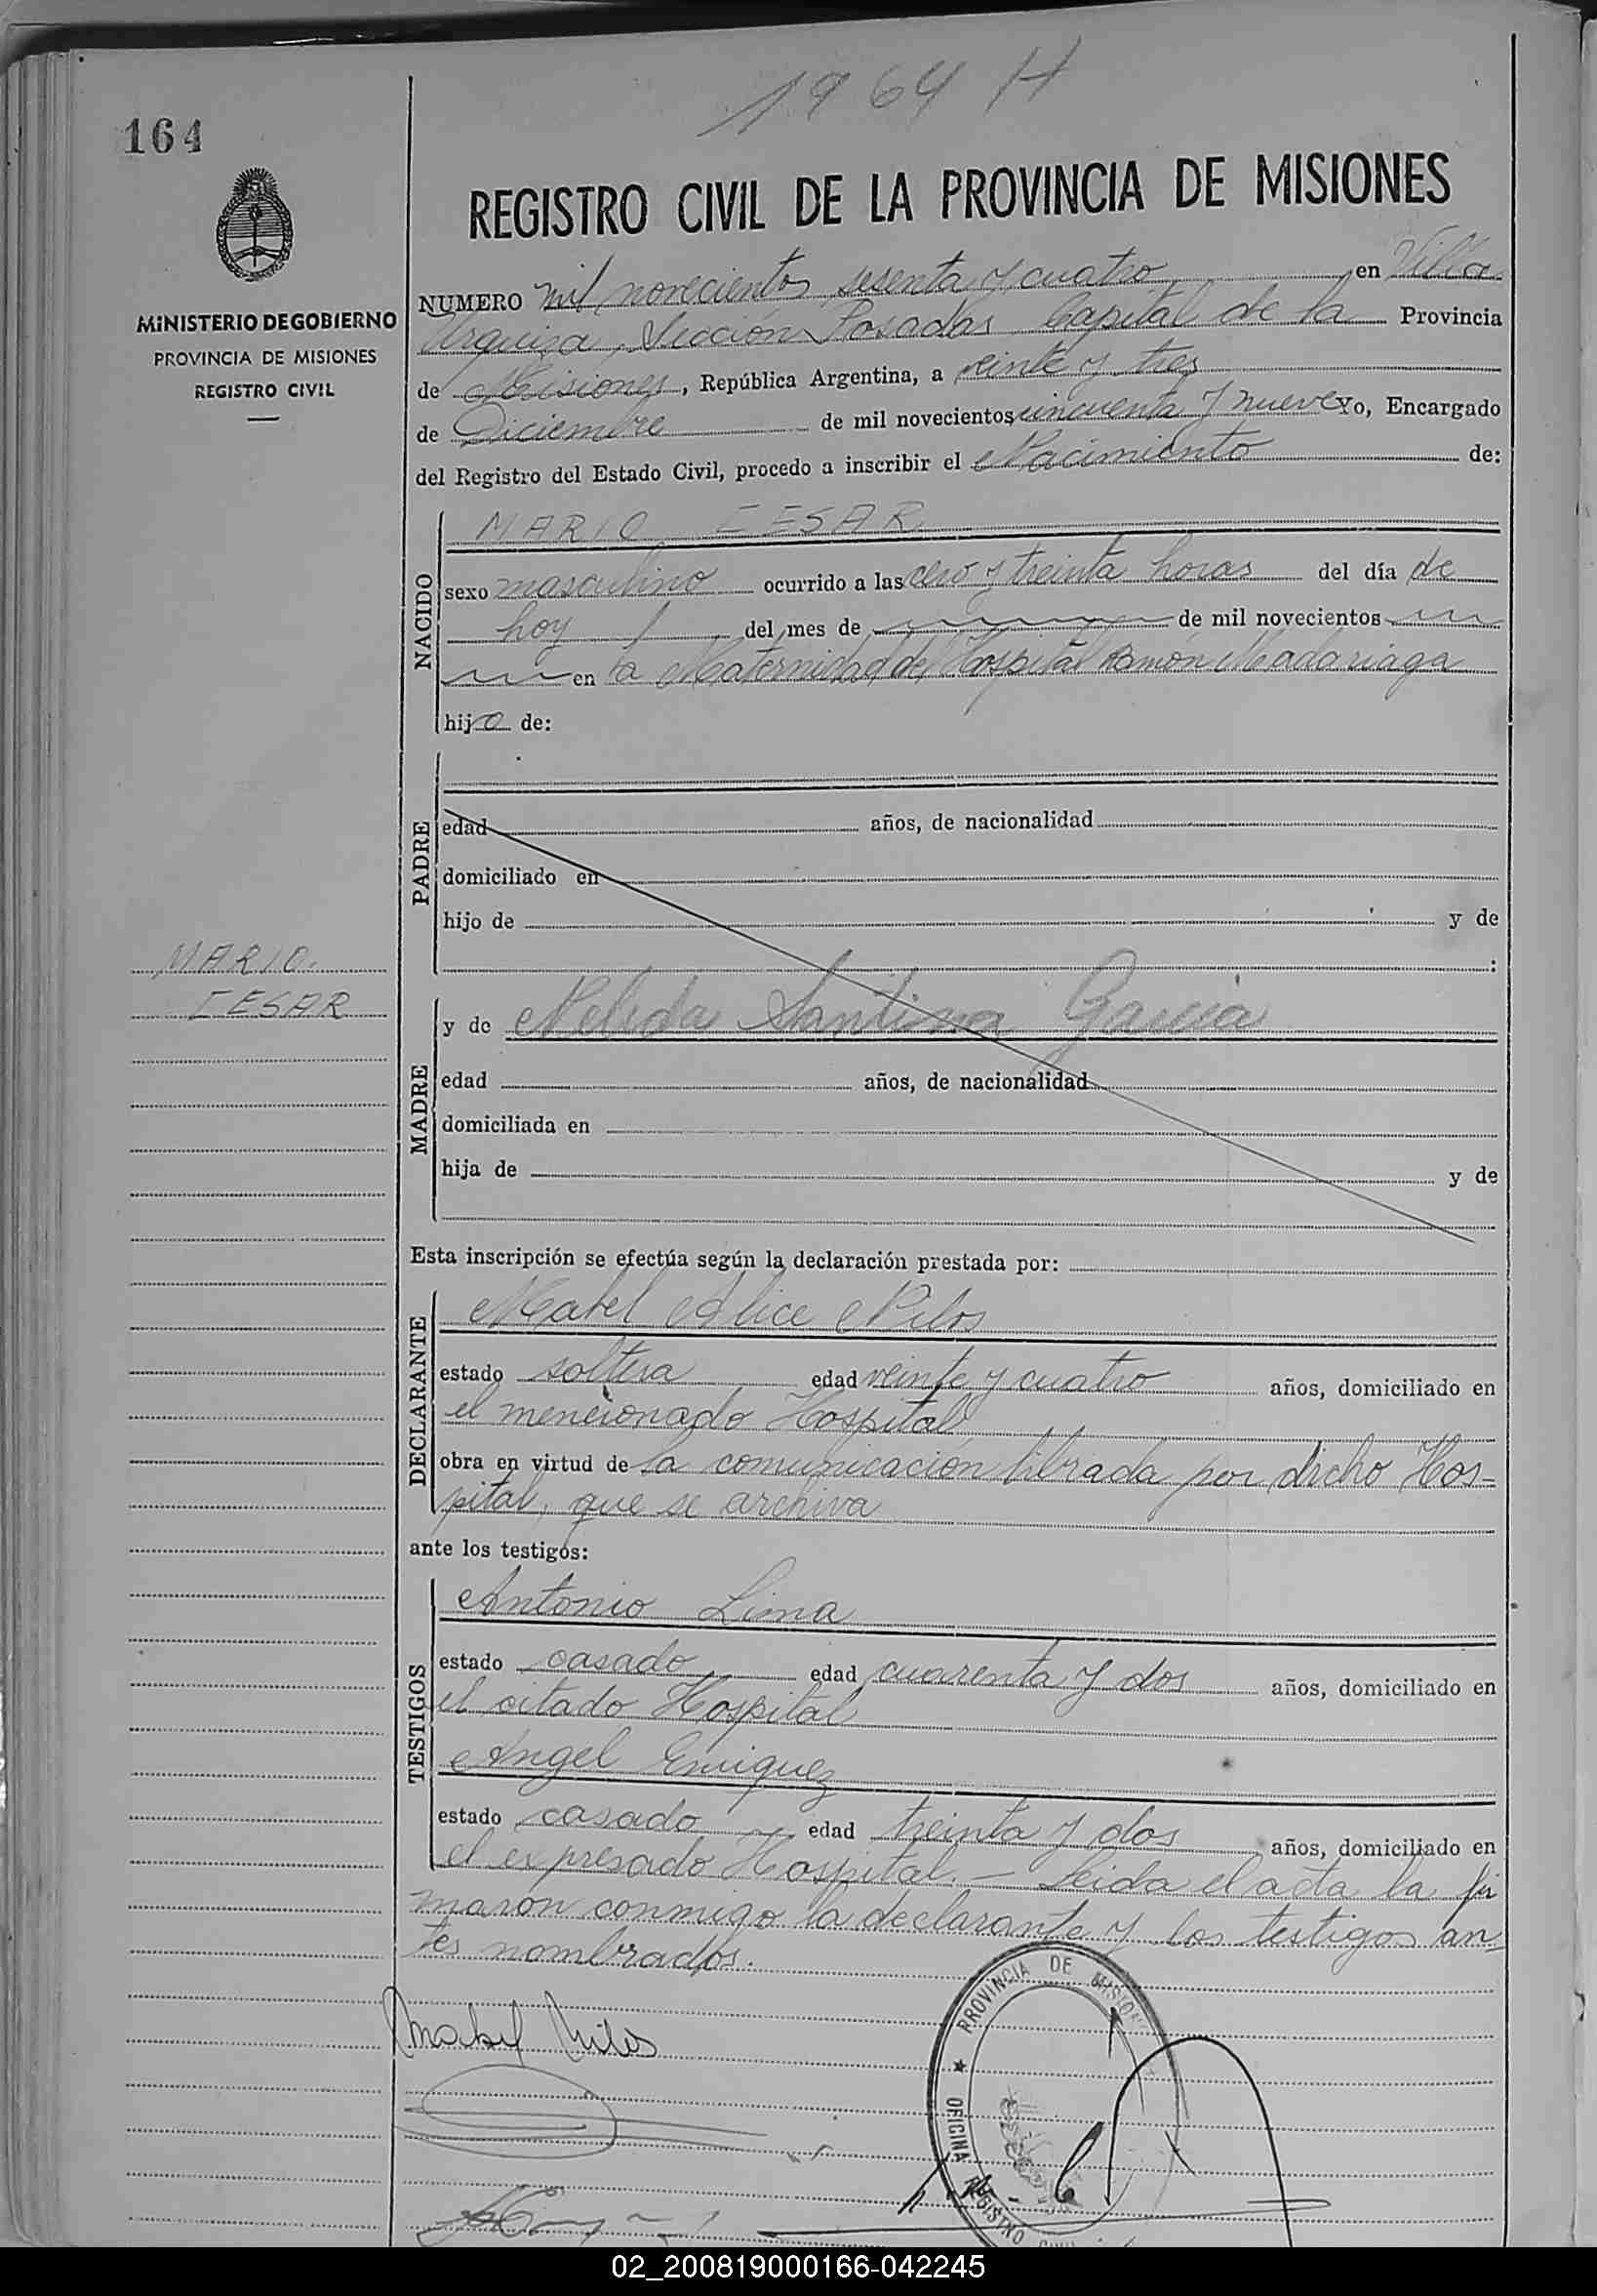 1964 H
164
REGISTRO CIVIL DE LA PROVINCIA DE MISIONES
MINISTERIO DE GOBIERNO
PROVINCIA DE MISIONES
REGISTRO CIVIL
NUMERO mil novecientos sesenta y cuatro en Villa
Urquiza, Sección Posadas Capital de la Provincia
de Misiones, República Argentina, a veinte y tres
de Diciembre de mil novecientos cincuenta y nueve Yo, Encargado
del Registro del Estado Civil, procedo a inscribir el Nacimiento de:
NACIDO
MARIO CESAR
sexo masculino ocurrido a las cero y treinta horas del día de
hoy del mes de de mil novecientos
en la Maternidad del Hospital Ramón Madariaga
hijo de:
PADRE
edad años, de nacionalidad
domiciliado en
hijo de y de
:
MARIO
CESAR
MADRE
y de Nelida Santina Garcia
edad años, de nacionalidad
domiciliada en
hija de y de
Esta inscripción se efectúa según la declaración prestada por:
DECLARANTE
Mabel Alice
estado soltera edad veinte y cuatro años, domiciliado en
el mencionado Hospital
obra en virtud de la comunicación librada por dicho Hos-
pital, que se archiva
ante los testigos:
TESTIGOS
Antonio Lima
estado casado edad cuarenta y dos años, domiciliado en
el citado Hospital
Angel Enriquez
estado casado edad treinta y dos años, domiciliado en
el expresado Hospital. - Leida el acta la fir
maron conmigo la declarante y los testigos an-
tes nombrados.
Mabel
PROVINCIA DE MISIONES
OFICINA REGISTRO CIVIL
02_200819000166-042245